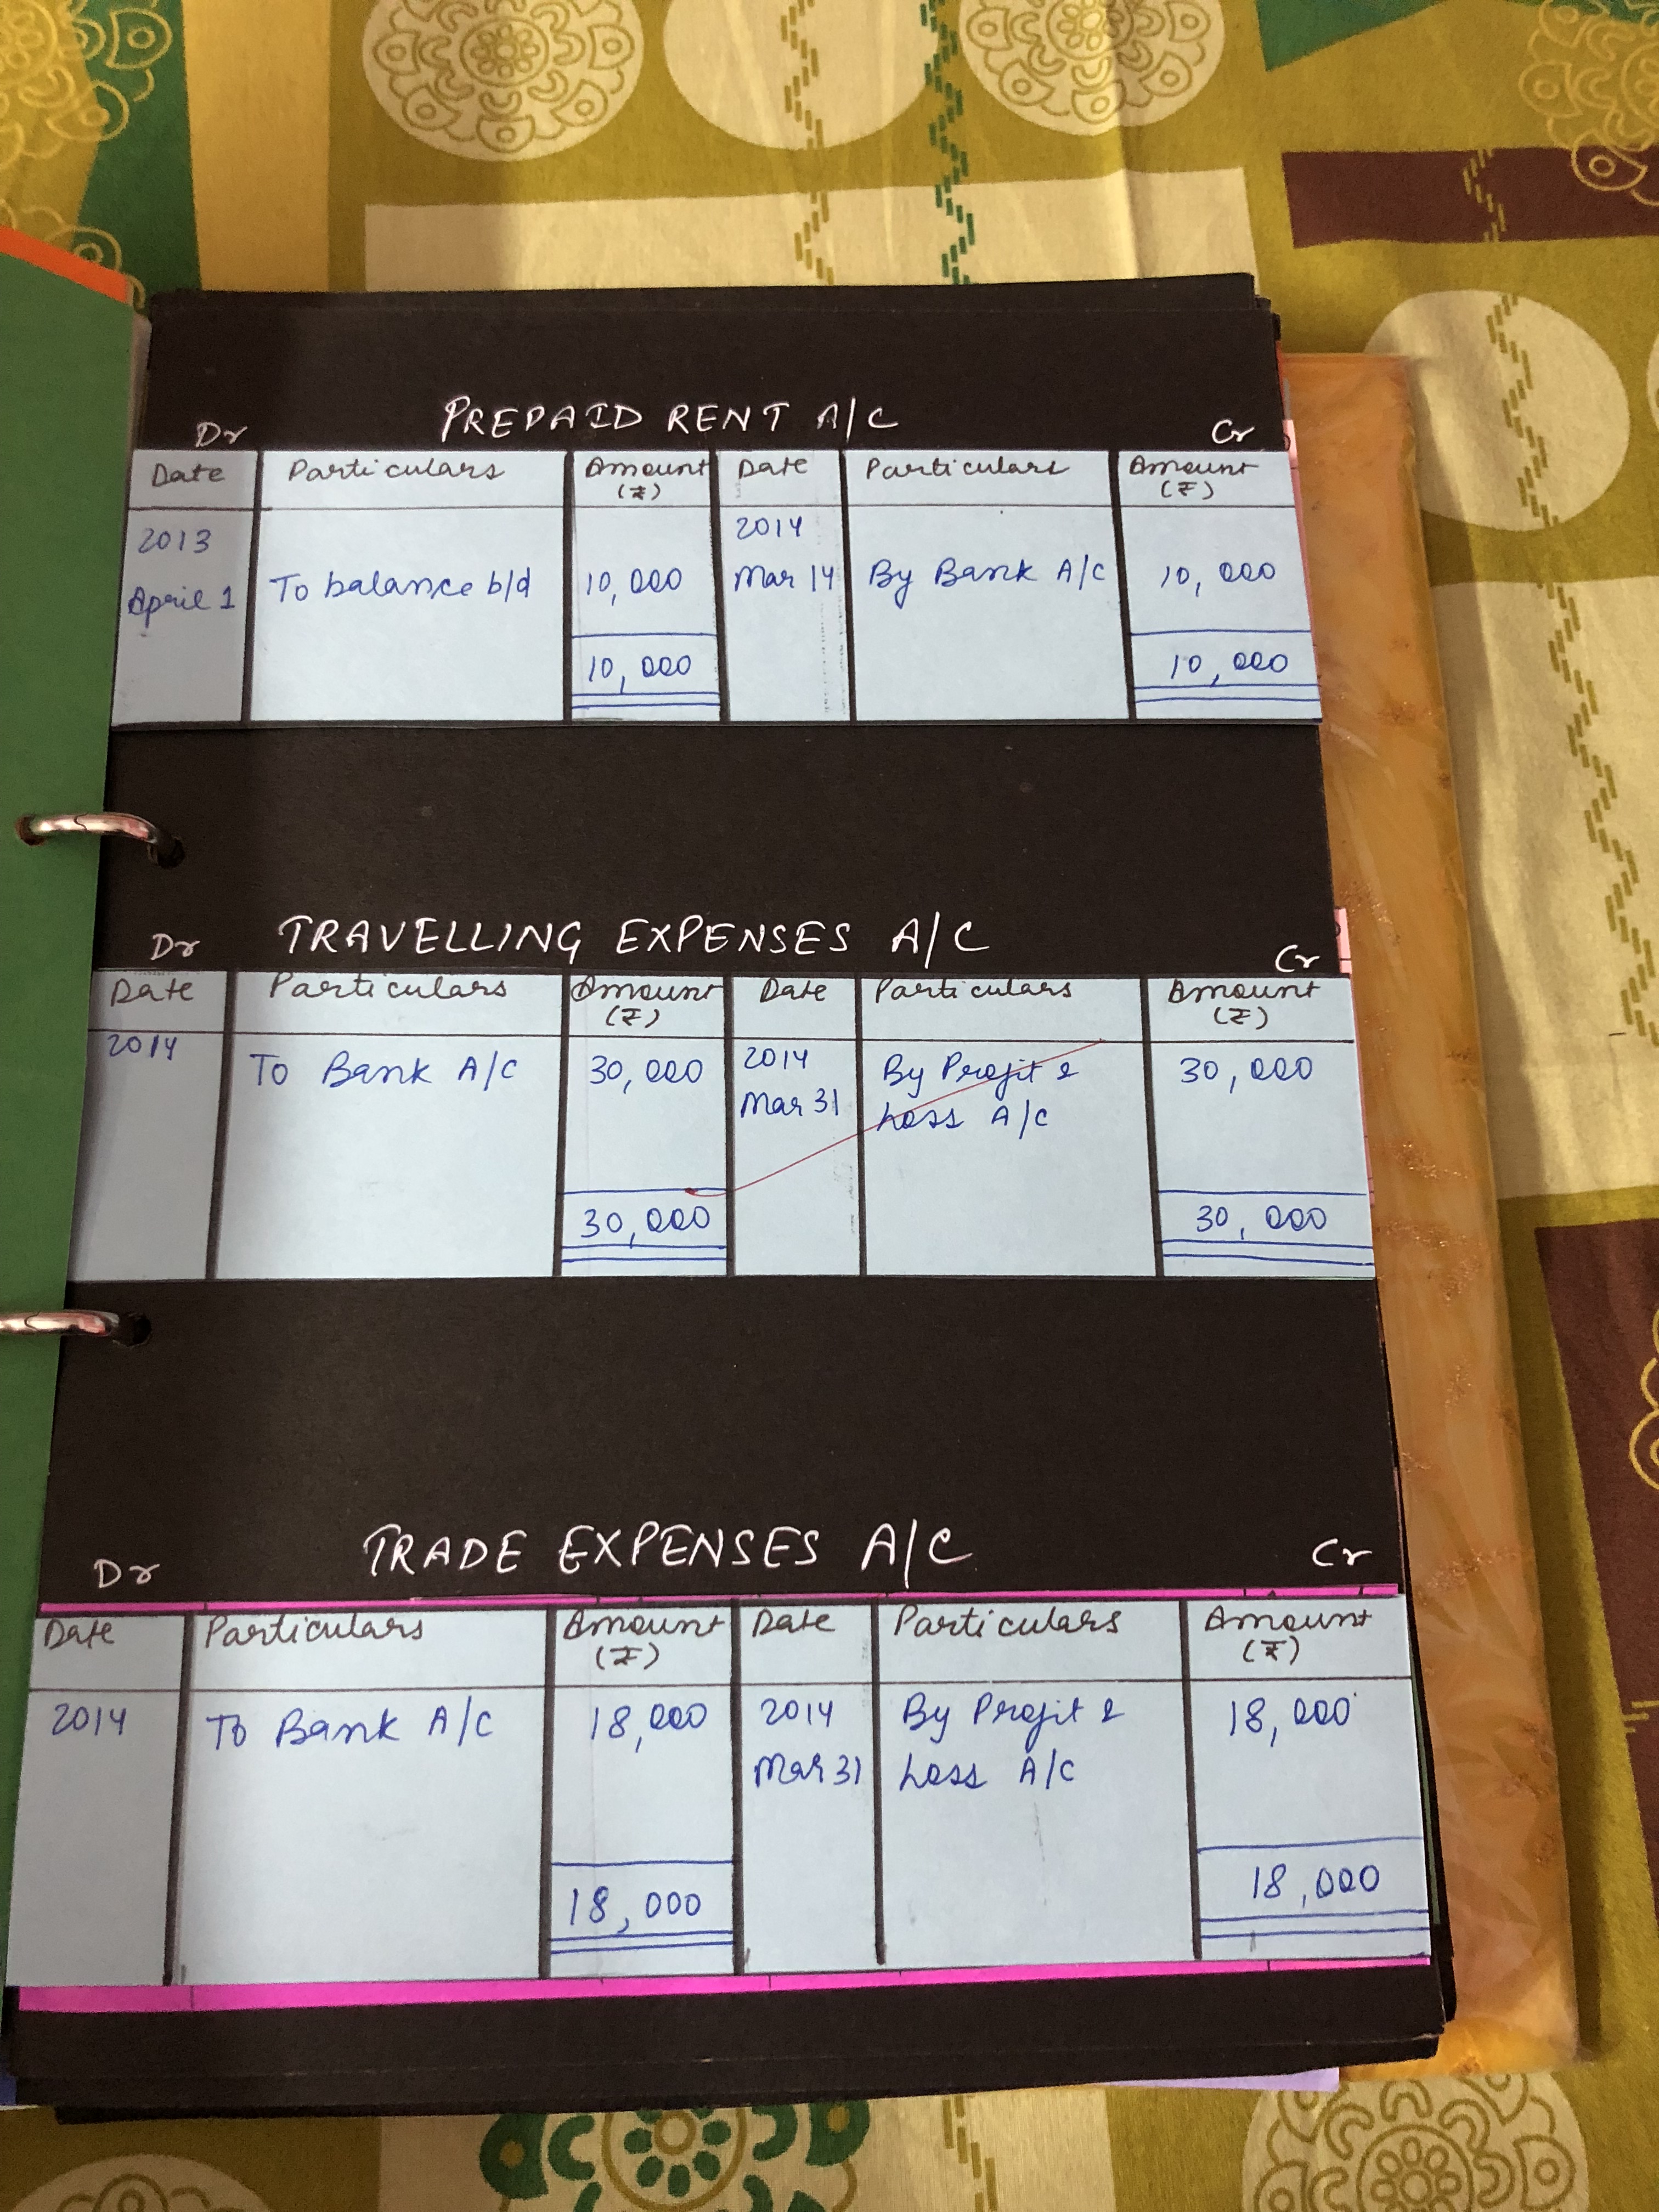 PREPAID RENT A/C
Dr Cr
Date Particulars Amount (₹) Date Particulars Amount (₹)
2013 2014
April 1 To balance b/d 10,000 Mar 14 By Bank A/C 10,000
10,000 10,000
TRAVELLING EXPENSES A/C
Dr Cr
Date Particulars Amount (₹) Date Particulars Amount (₹)
2014 To Bank A/C 30,000 2014 By Profit & 30,000
Mar 31 Loss A/C
30,000 30,000
TRADE EXPENSES A/C
Dr Cr
Date Particulars Amount (₹) Date Particulars Amount (₹)
2014 To Bank A/C 18,000 2014 By Profit & 18,000
Mar 31 Loss A/C
18,000 18,000